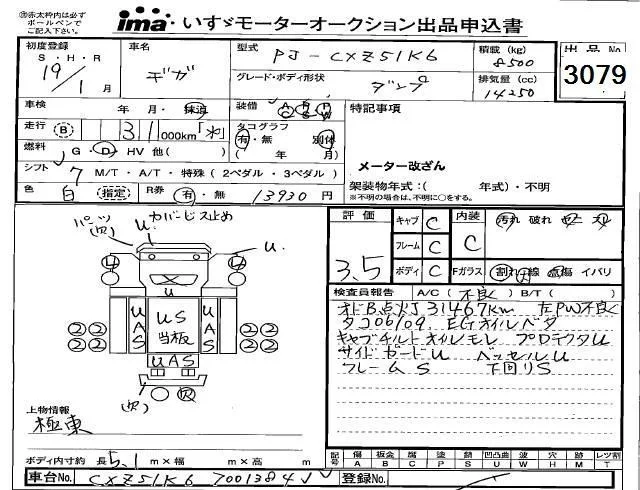 ㊟赤太枠内は必ず
ボールペンで
ご記入下さい。
ima いすゞモーターオークション出品申込書
初度登録
S・H・R
19/1月
車名
ギガ
型式
PJ-CXZ51K6
積載(kg)
8500
出品No
3079
グレード・ボディ形状
ダンプ
排気量(cc)
14250
車検 年・月・抹消
装備 A P P
特記事項
走行 (B) 31 000km
タコグラフ
有・無 別体
( 年 月)
燃料 G・D・HV 他( )
メーター改ざん
シフト 7 M/T・A/T・特殊(2ペダル・3ペダル)
架装物年式:( 年式)・不明
※不明の場合は、不明に〇をする。
色 白 (指定) R券 有・無 13930円
評価
3.5
キャブ C
フレーム C
ボディ C
内装
C
汚れ 破れ
Fガラス 割れ 線 点傷 イバリ
パンツ
(穴)
U カバービス止め
U.
U
UAS
US
当板
UAS
UAS
(穴)
検査員報告 A/C( 不良 ) B/T( )
オドB.点灯 31467km 左PW不良
タコ06/09 EGオイルベタ
キャブチルトオイルモレ プロテクタU
サイドガードU ベッセルU
フレームS 下回りS
上物情報
極東
ボディ内寸約 長5.1m×幅 m×高 m
記号 傷A 板金B 腐C 塗P 錆S 凹凸曲U 波W 割H 穴X 跡M レツ割T
車台No. CXZ51K6 7001384J
登録No.